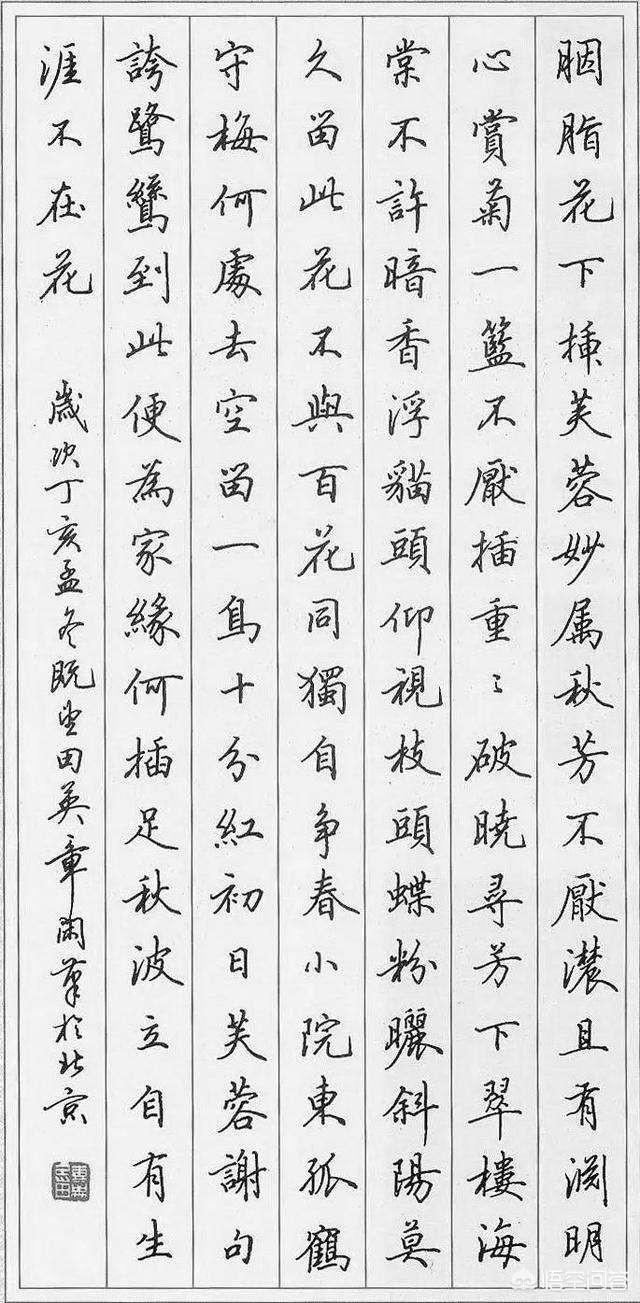 胭脂花下插芙蓉妙属秋芳不厭濃且有渕明
心賞菊一籃不厭插重〻破曉尋芳下翠樓海
棠不許暗香浮貓頭仰視枝頭蝶粉曬斜陽莫
久畄此花不與百花同獨自争春小院東孤鶴
守梅何處去空畄一鳥十分紅初日芙蓉謝句
誇鷺鷥到此便為家緣何插足秋波立自有生
涯不在花 歲次丁亥孟冬既望田英章閑筆於北京
悟空问答